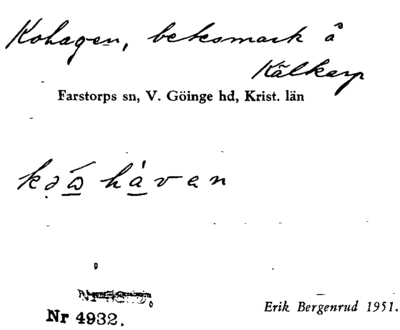 Kohagen, betesmark å
Kälkarp
Farstorps sn, V. Göinge hd, Krist. län
Nr 4932.
Erik Bergenrud 1951.